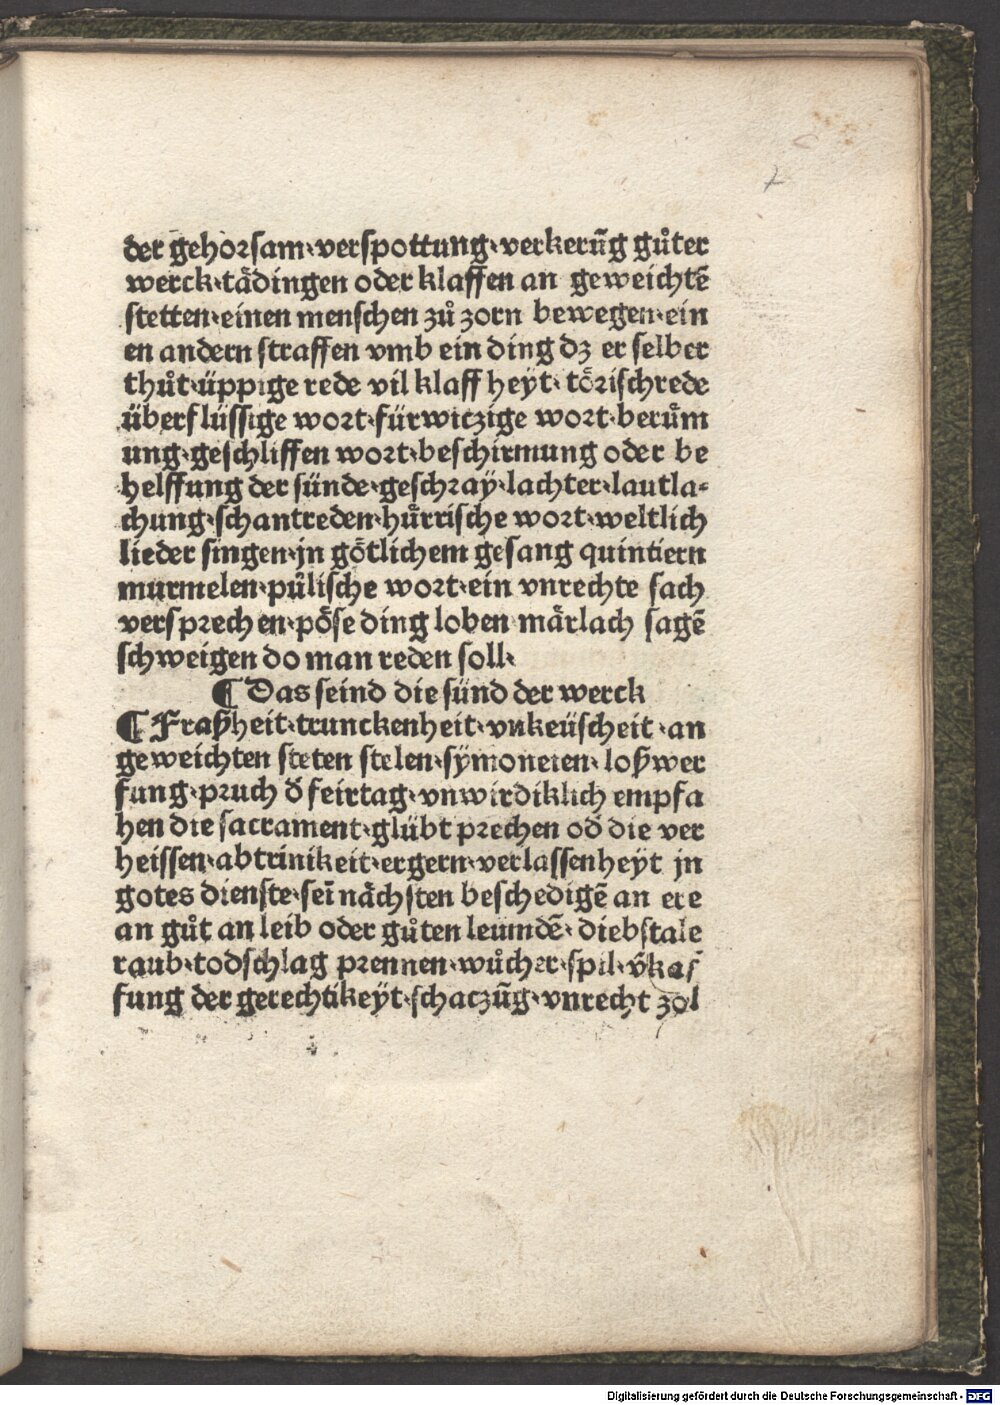 7
der gehorſam·verſpottung·verkerũg gůter
werck·tådingen oder klaffen an geweichtē
ſtetten·einen menſchen zů zorn bewegen·ein
en andern ſtraffen vmb ein ding dz er ſelber
thůt·üppige rede vil klaff heÿt·töriſch rede
überflüſſige wort·fürwiczige wort·berům
ung·geſchliffen wort·beſchirmung oder be
helffung der ſünde·geſchraÿ·lachter·lautla⸗
chung·ſchantreden·hůrriſche wort·weltlich
lieder ſingen·jn götlichem geſang quintiern
murmelen·půliſche wort·ein vnrechte ſach
verſprechen·pöſe ding loben märlach ſagē
ſchweigen do man reden ſoll·
¶ Das ſeind die ſünd der werck
¶ Fraßheit·trunckenheit·vnkeüſcheit·an
geweichten ſteten ſtelen·ſÿmoneien·loßwer
fung·pruch d̾ feirtag·vnwirdiklich empfa
hen die ſacrament·glübt prechen od̾ die ver
heiſſen·abtrinikeit·ergern·verlaſſenheÿt jn
gotes dienſte·ſeī nächſten beſchedigē an ere
an gůt an leib oder gůten leumdē·diebſtale
raub·todſchlag prennen·wůcher·ſpil·v̾kaf
fung der gerechtikeÿt·ſchaczũg·vnrecht zol
Digitalisierung gefördert durch die Deutsche Forschungsgemeinschaft - DFG